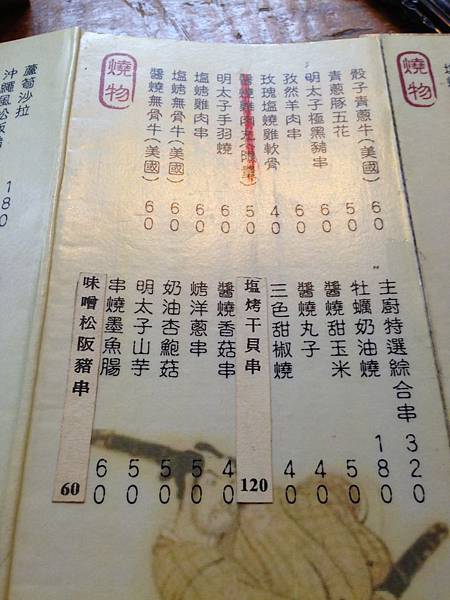 燒物
燒物
骰子青蔥牛(美國) 60
青蔥豚五花 50
明太子極黑豬串 60
孜然羊肉串 60
玫瑰塩燒雞軟骨 40
醬燒雞肉丸(限量) 50
明太子手羽燒 60
塩烤雞肉串 60
塩烤無骨牛(美國) 60
醬燒無骨牛(美國) 60
主廚特選綜合串 320
牡蠣奶油燒 180
醬燒甜玉米 50
醬燒丸子 40
三色甜椒燒 40
塩烤干貝串 120
醬燒香菇串 40
烤洋蔥串 50
奶油杏鮑菇 50
明太子山芋 50
串燒墨魚腸 60
味噌松阪豬串 60
蘆筍沙拉
沖繩風松阪 180